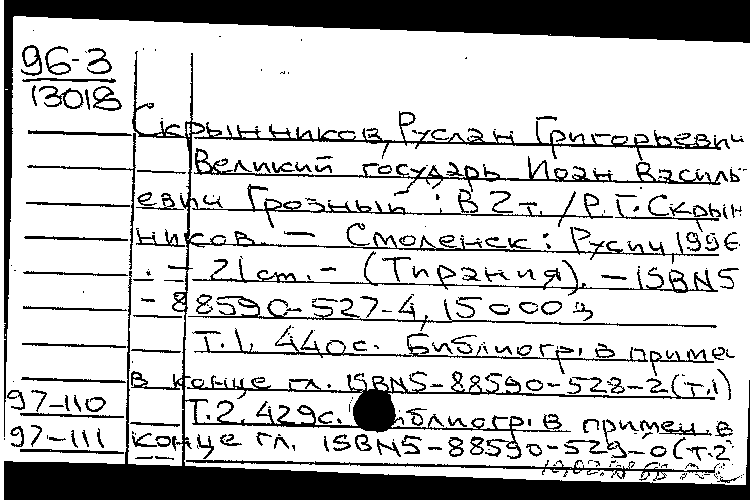 96-3
13018
Скрынников, Руслан Григорьевич
Великий государь Иоан Василь-
евич Грозный : В 2 т. / Р.Г. Скрын
ников. — Смоленск : Русич, 1996
. — 21 см. — (Тирания). — ISBN 5
-88590-527-4, 15000 э
Т.1. 440с. Библиогр. в приме
в конце гл. ISBN5-88590-528-2 (т.1)
97-110
Т.2. 429с. иблиогр. в примеч. в
97-111
конце гл. ISBN5-88590-529-0 (т.2